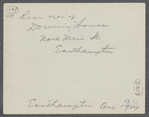 Rear view of
Downing House
North Main St.
Easthampton
Easthampton Aug 1924